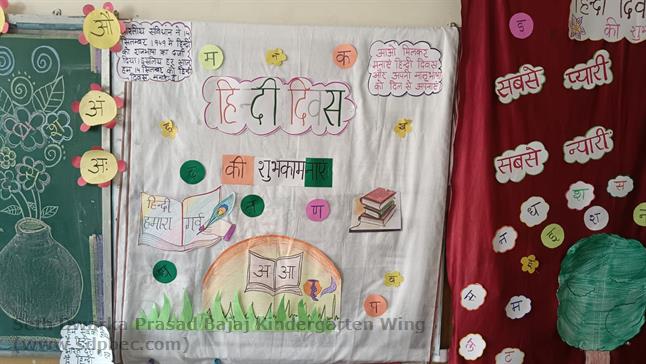 ओ
अं
अः
भारतीय संविधान ने १४
सितम्बर १९४९ में हिन्दी
को राजभाषा का दर्जा
दिया। इसलिए हर साल
हम १४ सितंबर को हिंदी
दिवस मनाते हैं।
म
न
क
आओ मिलकर
मनाएँ हिन्दी दिवस
और अपनी मातृभाषा
को दिल से अपनाएँ
हिन्दी दिवस
की शुभकामनाएं
हिन्दी
हमारा गर्व
ण
अ आ
ब
प
इ
हिन्दी दिवस
की
सबसे प्यारी
सबसे न्यारी
श
स
ध
त
श
म
Seth Dwarka Prasad Bajaj Kindergarten Wing
(www.sdpbec.com)